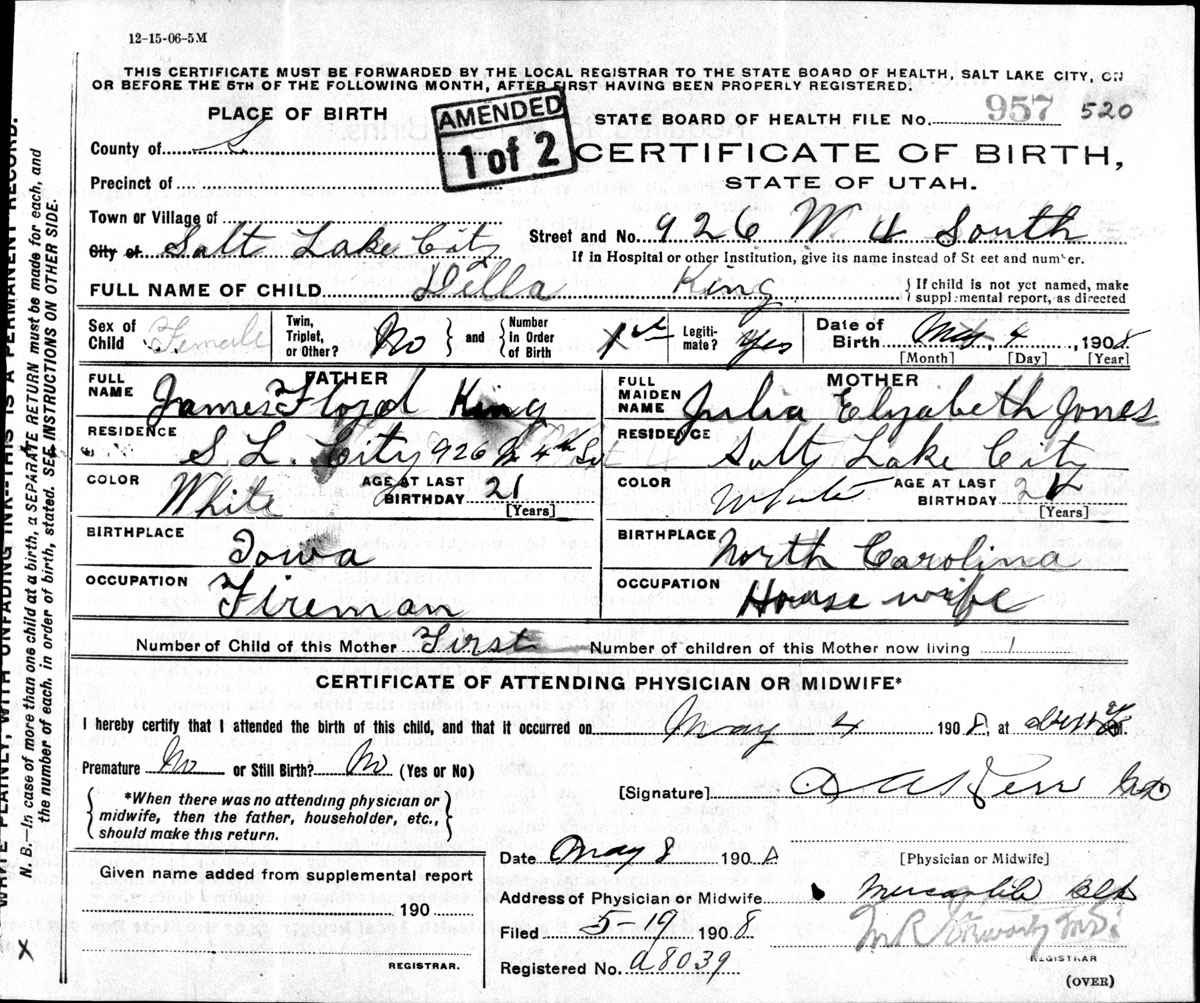 12-15-06-5M
THIS CERTIFICATE MUST BE FORWARDED BY THE LOCAL REGISTRAR TO THE STATE BOARD OF HEALTH, SALT LAKE CITY, ON
OR BEFORE THE 5TH OF THE FOLLOWING MONTH, AFTER FIRST HAVING BEEN PROPERLY REGISTERED.
PLACE OF BIRTH
AMENDED
1 of 2
STATE BOARD OF HEALTH FILE No. 957 520
County of S.
CERTIFICATE OF BIRTH,
STATE OF UTAH.
Precinct of
Town or Village of
City of Salt Lake City
Street and No. 926 W 4 South
If in Hospital or other Institution, give its name instead of St eet and number.
FULL NAME OF CHILD Della King
If child is not yet named, make
supplemental report, as directed
Sex of Child Female
Twin, Triplet, or Other? No
and Number in Order of Birth 1st
Legitimate? Yes
Date of Birth May 4, 1908
[Month] [Day] [Year]
FATHER
FULL NAME James Floyd King
MOTHER
FULL MAIDEN NAME Julia Elyzabeth Jones
RESIDENCE S L. City 926 W 4th So
RESIDENCE Salt Lake City
COLOR White AGE AT LAST BIRTHDAY 21 [Years]
COLOR White AGE AT LAST BIRTHDAY [Years]
BIRTHPLACE Iowa
BIRTHPLACE North Carolina
OCCUPATION Fireman
OCCUPATION House wife
Number of Child of this Mother First Number of children of this Mother now living 1
CERTIFICATE OF ATTENDING PHYSICIAN OR MIDWIFE*
I hereby certify that I attended the birth of this child, and that it occurred on May 4 1908, at about M.
Premature No or Still Birth? No (Yes or No)
[Signature]
*When there was no attending physician or
midwife, then the father, householder, etc.,
should make this return.
Date May 8 1908
[Physician or Midwife]
Given name added from supplemental report
190
REGISTRAR.
Address of Physician or Midwife Mercantile Blk
Filed 5-19 1908
REGISTRAR
Registered No. a8039
(OVER)
WRITE PLAINLY, WITH UNFADING INK--THIS IS A PERMANENT RECORD.
N. B.—In case of more than one child at a birth, a SEPARATE RETURN must be made for each, and
the number of each, in order of birth, stated. SEE INSTRUCTIONS ON OTHER SIDE.
X